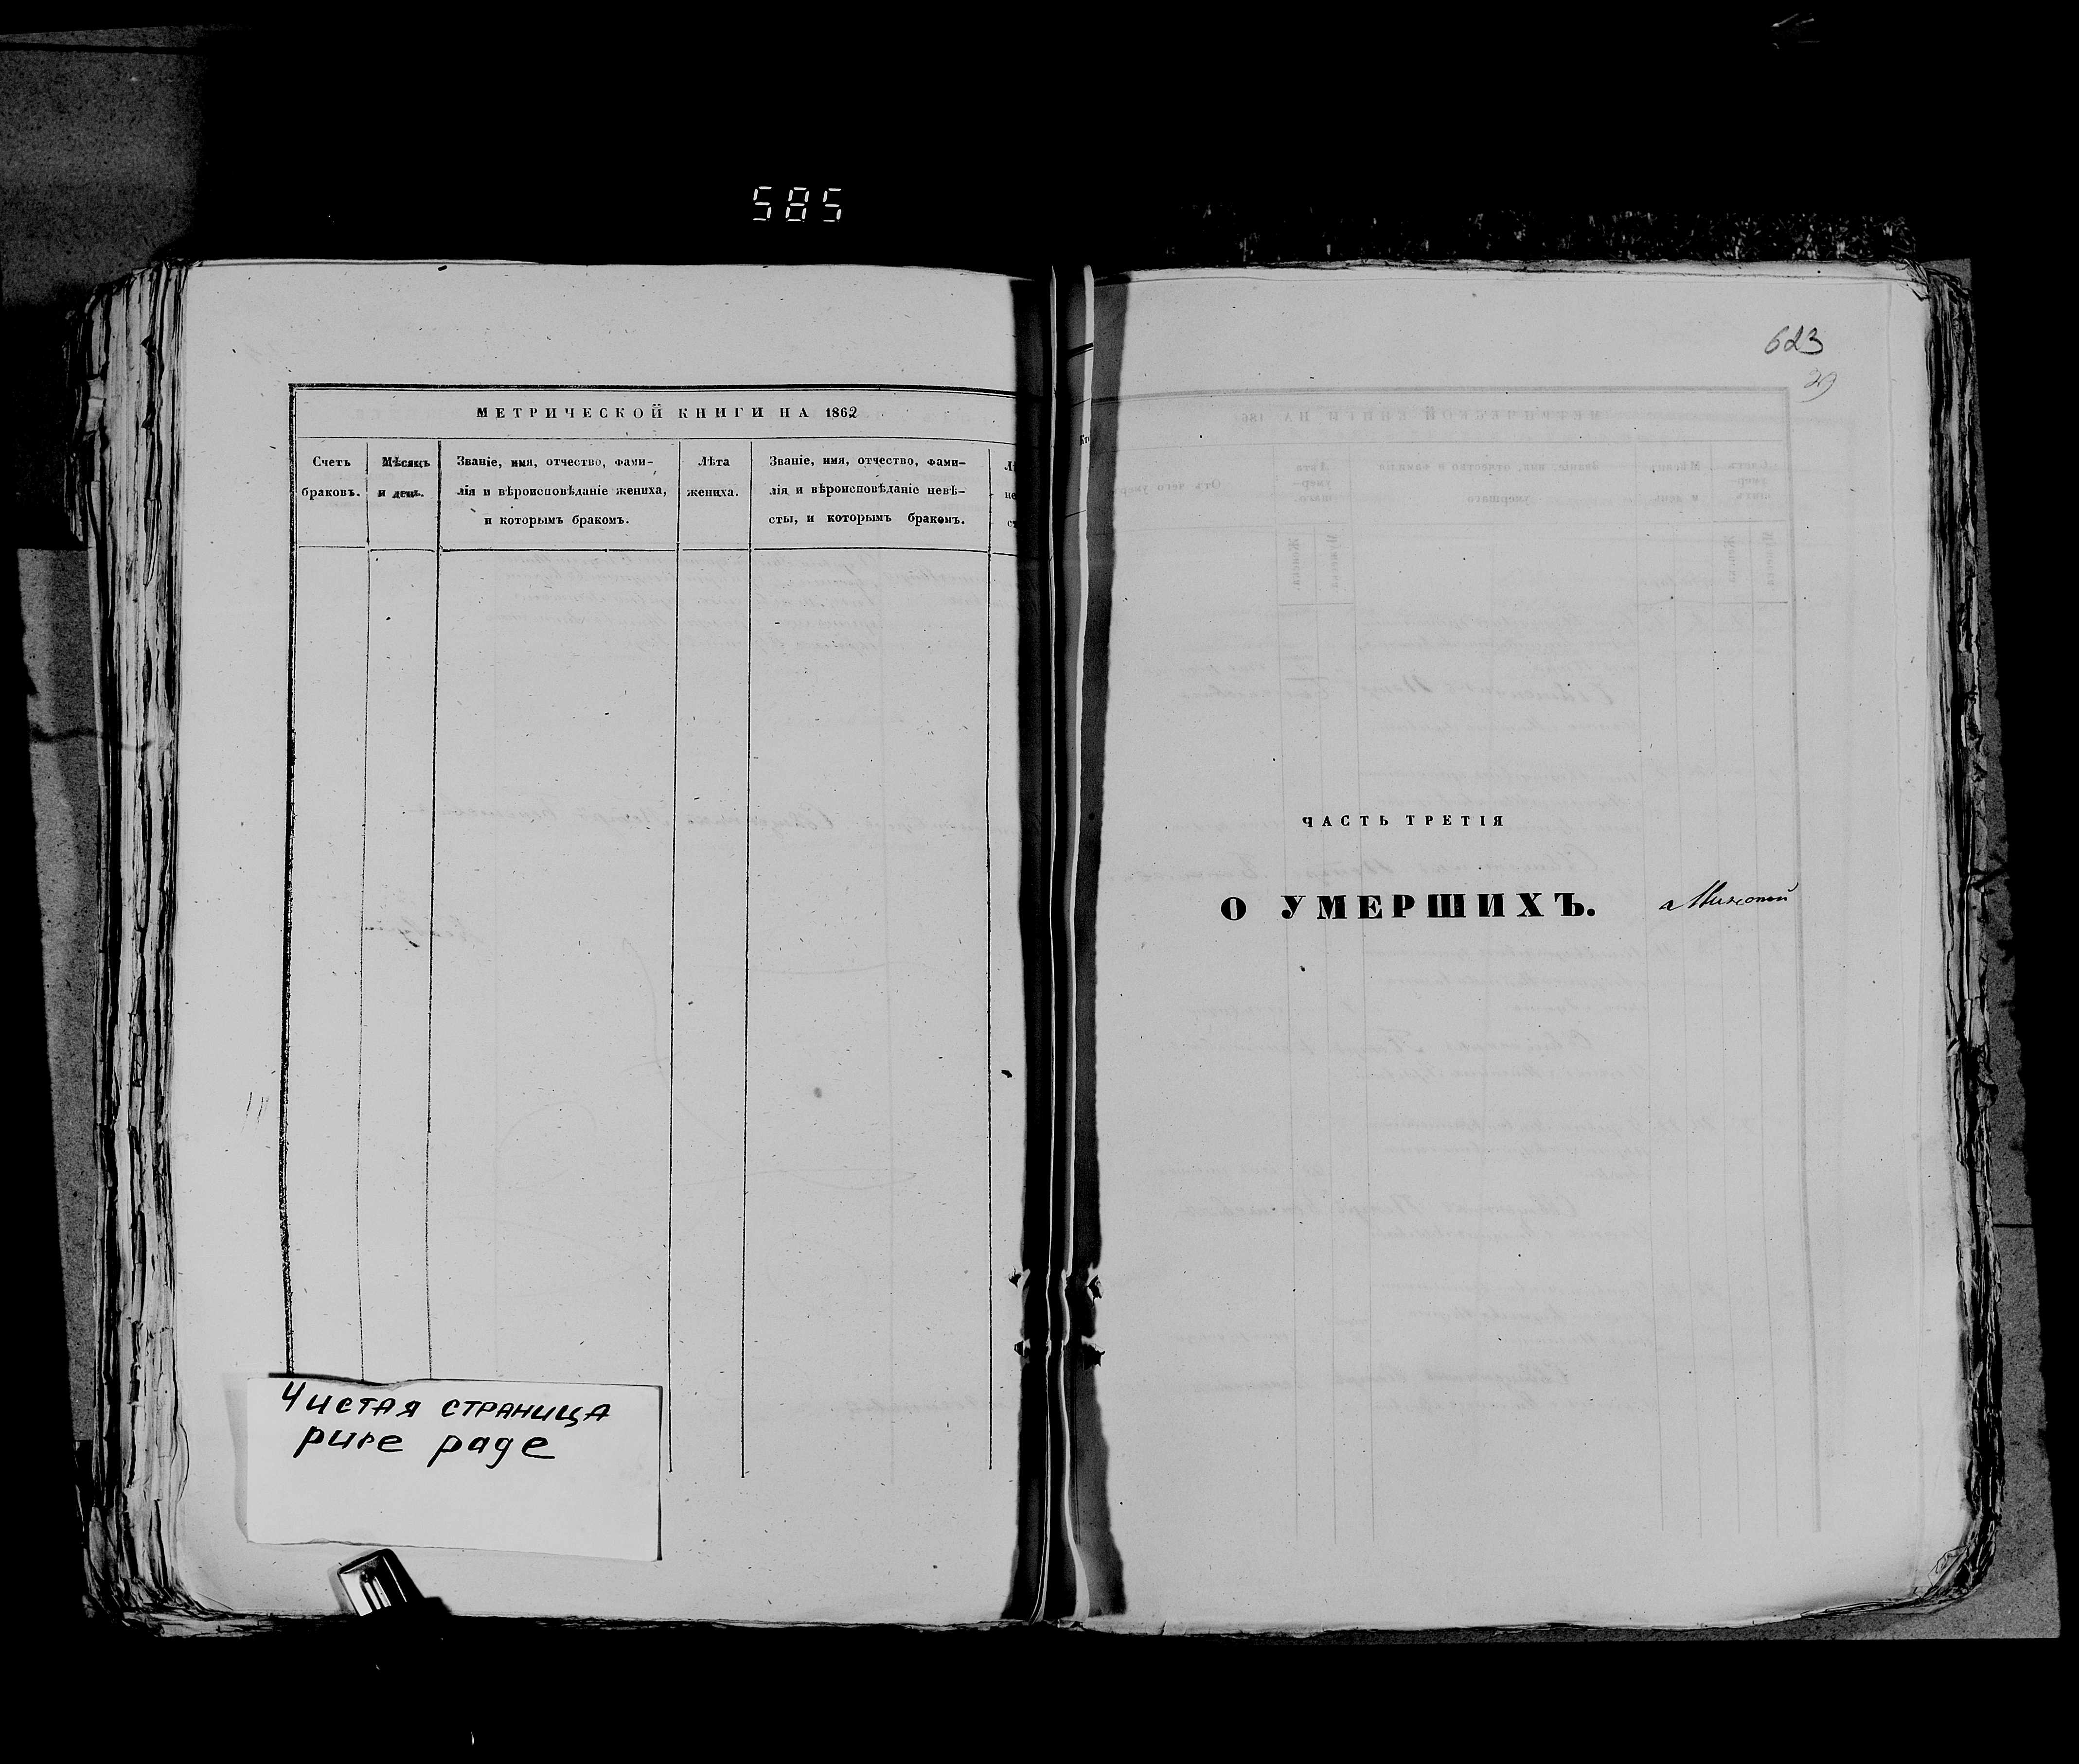 585
МЕТРИЧЕСКОЙ КНИГИ НА 1862
Счетъ
браковъ.
Мѣсяцъ
и день.
Званіе, имя, отчество, фами-
лія и вѣроисповѣданіе жениха,
и которымъ бракомъ.
Лѣта
жениха.
Званіе, имя, отчество, фами-
лія и вѣроисповѣданіе невѣ-
сты, и которымъ бракомъ.
Чистая страница
pure page
623
29
ЧАСТЬ ТРЕТІЯ
О УМЕРШИХЪ.